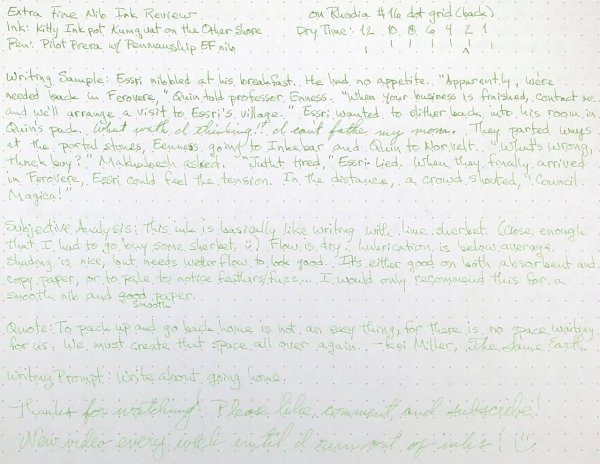 Extra Fine Nib Ink Review on Rhodia #16 dot grid (back)
Ink: Kitty Inkpot Kumquat on the Other Shore Dry Time: 12 10 8 6 4 2 1
Pen: Pilot Prera w/ Penmanship EF nib
Writing Sample: Essri nibbled at his breakfast. He had no appetite. "Apparently, we're
needed back in Ferovere," Quin told professor Enness. "When your business is finished, contact me
and we'll arrange a visit to Essri's village." Essri wanted to slither back into his room in
Quin's pack. What wath I thinking!? I can't fathe my mom. They parted ways
at the portal stones, Eenness going to Inkabar and Quin to Norvelt. "What's wrong,
boy?" Makhabech asked. "Jutht tired," Essri lied. When they finally arrived
in Ferovere, Essri could feel the tension. In the distance, a crowd shouted, "Council
Magica!"
Subjective Analysis: This ink is basically like writing with lime sherbet. (Close enough
that I had to go buy some sherbet. :) Flow is dry. Lubrication is below average.
Shading is nice, but needs wetter flow to look good. It's either good on both absorbent and
copy paper, or to pale to notice feathers/fuzz... I would only recommend this for a
smooth nib and good paper.
smooth
Quote: To pack up and go back home is not an easy thing, for there is no space waiting
for us. We must create that space all over again. -Kei Miller, The Same Earth
Writing Prompt: Write about going home.
Thanks for watching! Please like, comment, and subscribe!
New video every week until I run out of inks! :)